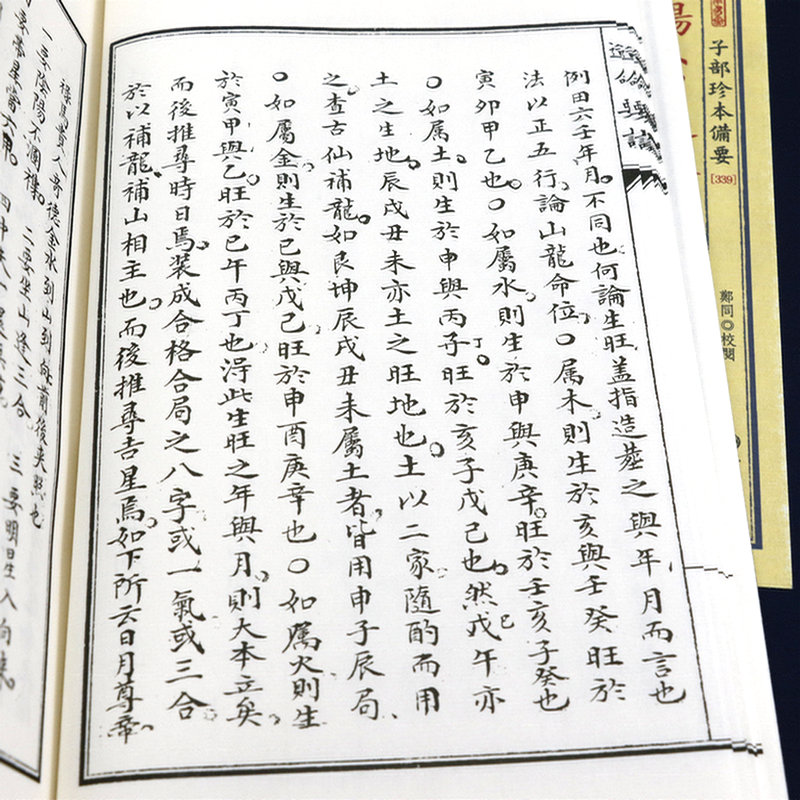 例田六壬年月不同也何論生旺盖指造塟之與年月而言也
法以正五行論山龍命位○属木則生於亥與壬癸旺於
寅卯甲乙也○如屬水則生於申與庚辛旺於壬亥子癸也
○如属土則生於申與丙丁旺於亥子戊己也然戊午亦
土之生地辰戌丑未亦土之旺地也土以二家隨酌而用
之查古仙補龍如艮坤辰戌丑未屬土者皆用申子辰局
○如屬金則生於巳與戊己旺於申酉庚辛也○如属火則生
於寅甲與乙旺於巳午丙丁也淂此生旺之年與月則大本立矣
而後推尋時日焉装成合格合局之八字或一氣或三合
於以補龍補山相主也而後推尋吉星焉如下所云日月尊帝
禄馬貴人
德金水到山到向
前後夹照也
一要陰陽不
二要坐山逢三合
三要明星入向
子部珍本備要
[339]
鄭同◎校閱